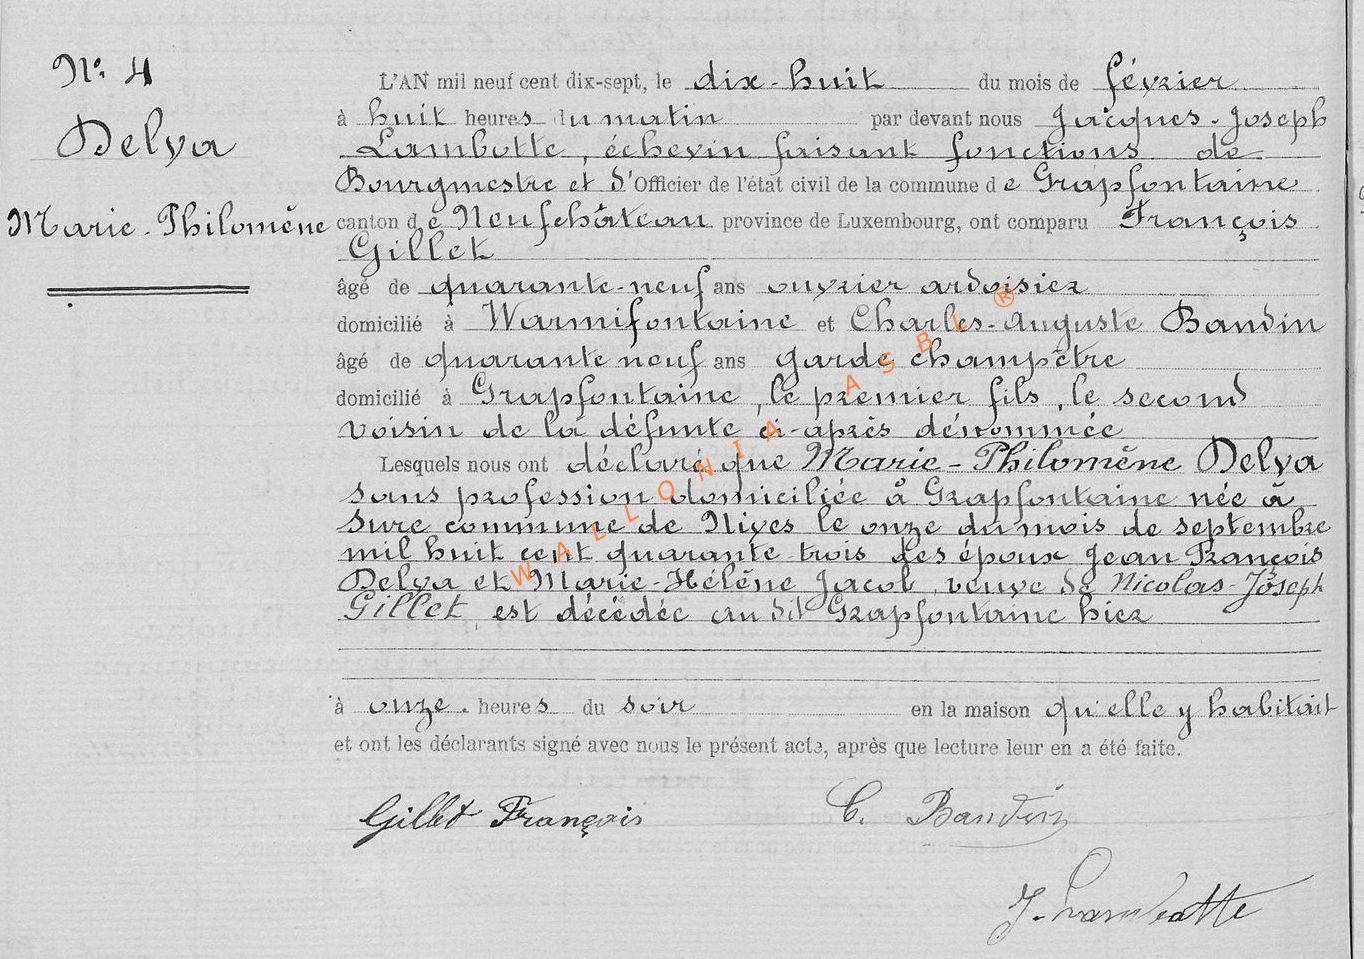 N° 4
Delva
Marie-Philomène
L'AN mil neuf cent dix-sept, le dix-huit du mois de février
à huit heures du matin par devant nous Jacques-Joseph
Lambotte, échevin faisant fonctions de
Bourgmestre et d'Officier de l'état civil de la commune de Grapfontaine
canton de Neufchâteau province de Luxembourg, ont comparu François
Gillet
âgé de quarante-neuf ans ouvrier ardoisier
domicilié à Warmifontaine et Charles-Auguste Baudin
âgé de quarante neuf ans garde champêtre
domicilié à Grapfontaine, le premier fils, le second
voisin de la défunte ci-après dénommée
Lesquels nous ont déclaré que Marie-Philomène Delva
sans profession domiciliée à Grapfontaine née à
Sure commune de Nives le onze du mois de septembre
mil huit cent quarante-trois des époux Jean François
Delva et Marie-Hélène Jacob, veuve de Nicolas-Joseph
Gillet, est décédée au dit Grapfontaine hier
à onze heures du soir en la maison qu'elle y habitait
et ont les déclarants signé avec nous le présent acte, après que lecture leur en a été faite.
Gillet François
C. Baudin
J. Lambotte
WALLONIA ASBL ®